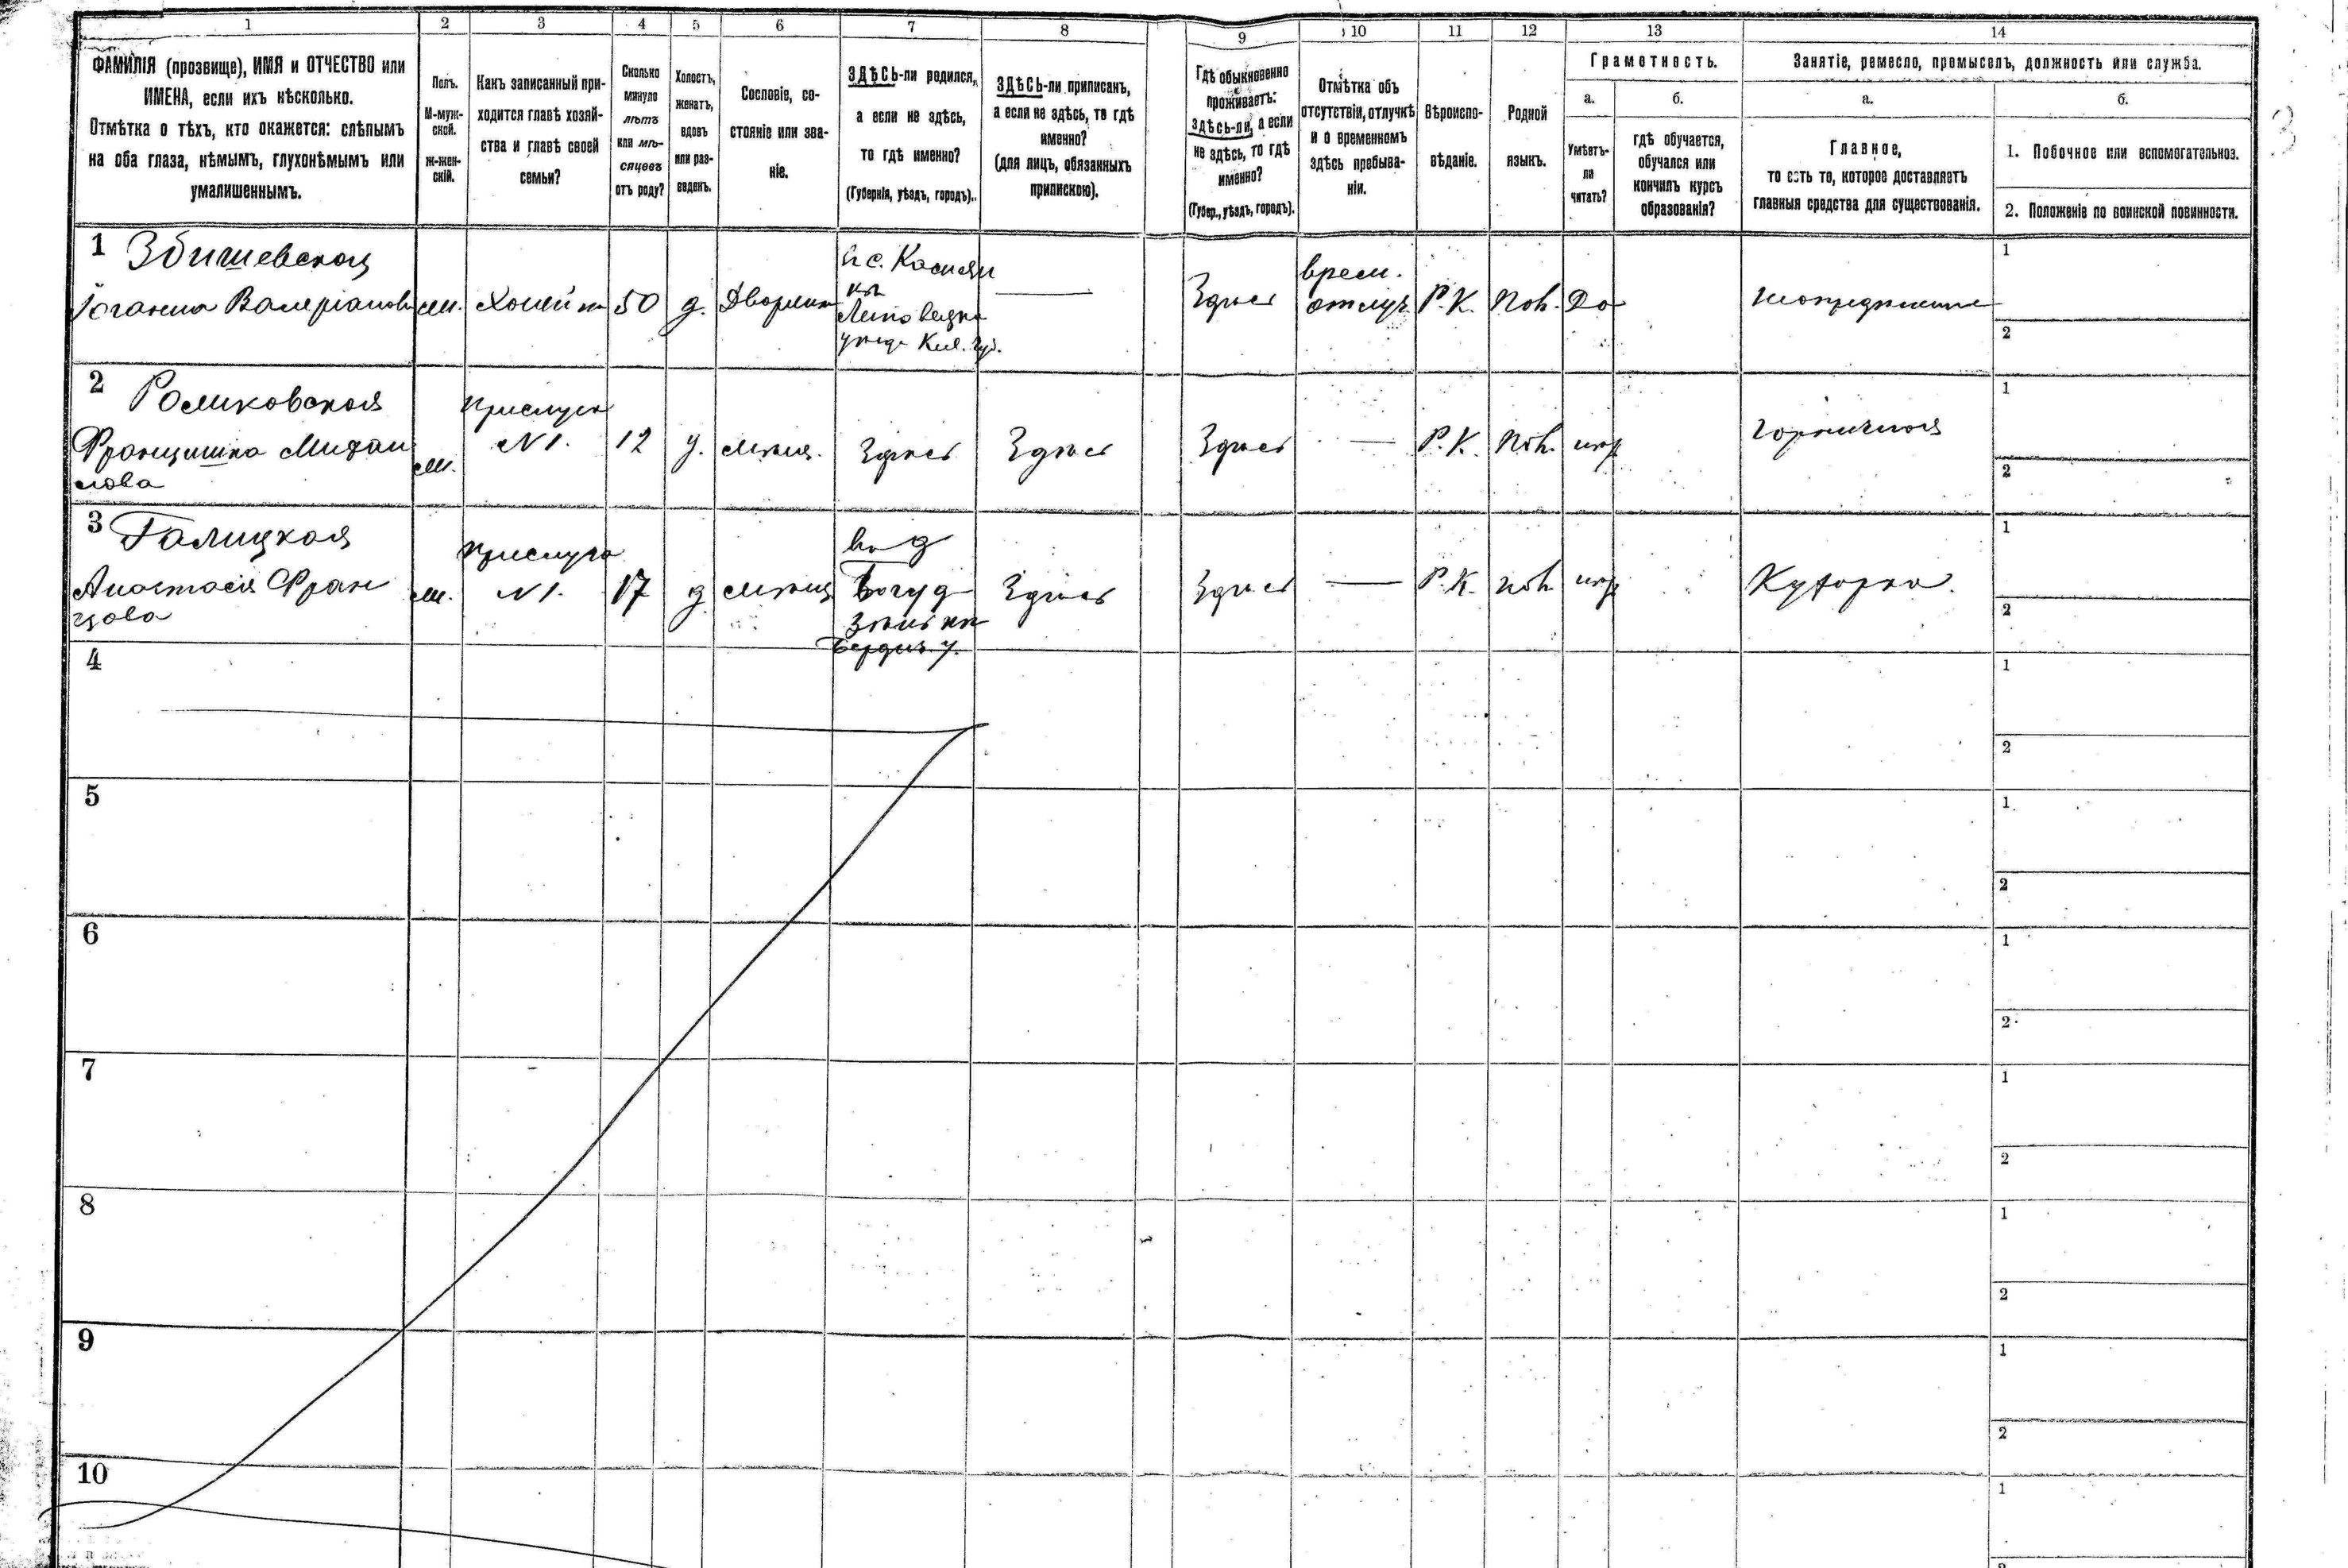 1 2 3 4 5 6 7 8 9 10 11 12 13 14
ФАМИЛІЯ (прозвище), ИМЯ и ОТЧЕСТВО или
ИМЕНА, если ихъ нѣсколько.
Отмѣтка о тѣхъ, кто окажется: слѣпымъ
на оба глаза, нѣмымъ, глухонѣмымъ или
умалишеннымъ.
Полъ.
М-муж-
ской.
ж-жен-
скій.
Какъ записанный при-
ходится главѣ хозяй-
ства и главѣ своей
семьи?
Сколько
минуло
лѣтъ
или мѣ-
сяцевъ
отъ роду?
Холостъ,
женатъ,
вдовъ
или раз-
веденъ.
Сословіе, со-
стояніе или зва-
ніе.
ЗДѢСЬ-ли родился,
а если не здѣсь,
то гдѣ именно?
(Губернія, уѣздъ, городъ).
ЗДѢСЬ-ли приписанъ,
а если не здѣсь, то гдѣ
именно?
(для лицъ, обязанныхъ
припискою).
Гдѣ обыкновенно
проживаетъ:
здѣсь-ли, а если
не здѣсь, то гдѣ
именно?
(Губер., уѣздъ, городъ).
Отмѣтка объ
отсутствіи, отлучкѣ
и о временномъ
здѣсь пребыва-
ніи.
Вѣроиспо-
вѣданіе.
Родной
языкъ.
Грамотность.
а.
Умѣетъ-
ли
читать?
б.
гдѣ обучается,
обучался или
кончилъ курсъ
образованія?
Занятіе, ремесло, промыселъ, должность или служба.
а.
Главное,
то есть то, которое доставляетъ
главныя средства для существованія.
б.
1. Побочное или вспомогательное.
2. Положеніе по воинской повинности.
3
1 Збишевская
Іоганна Валеріанова
ж.
Хозяйка
50
д.
Дворянка
Липовецка
уѣзда Кіе. Губ.
—
Здѣсь
врем.
отлуч.
Р. К.
Пол.
Да
1
2
2 Роликовская
Францишка
ж.
Прислуга
N 1.
12
д.
мѣщ.
Здѣсь
Здѣсь
Здѣсь
—
Р. К.
Пол.
нѣт
горничная
1
2
3 Галицкая
Анастасія Фран
цова
ж.
Прислуга
N 1.
17
д
мѣщ
въ д
Бердич. у.
Здѣсь
Здѣсь
—
Р. К.
Пол.
нѣт
Кухарка.
1
2
4
1
2
5
1
2
6
1
2
7
1
2
8
1
2
9
1
2
10
1
2